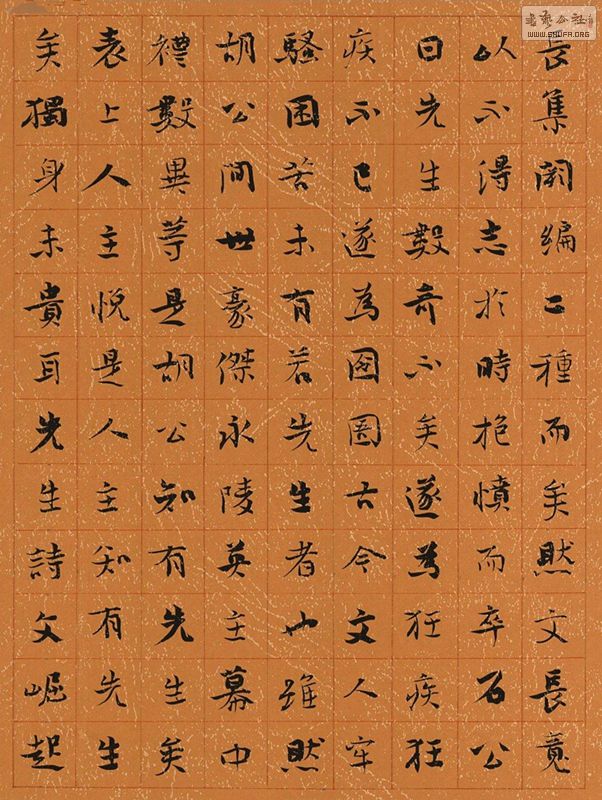 長集闕編二種而矣然文長竟
以不得志於時抱憤而卒石公
曰先生數奇不矣遂為狂疾狂
疾不已遂為囹圄古今文人牢
騷困苦未有若先生者也雖然
胡公間世豪傑永陵英主幕中
禮數異等是胡公知有先生矣
表上人主悅是人主知有先生
矣獨身未貴耳先生詩文崛起
書藝公社
WWW.SHUFA.ORG